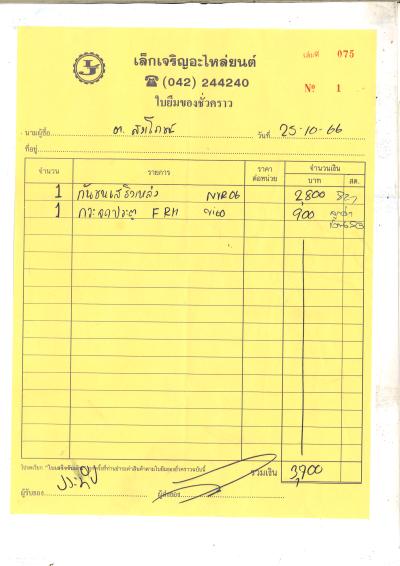 เล็กเจริญอะไหล่ยนต์
เล่มที่ 075
(042) 244240
ใบยืมของชั่วคราว
Nº 1
นามผู้ซื้อ ต. สมโภชน์ วันที่ 25-10-66
ที่อยู่
จำนวน รายการ ราคาต่อหน่วย จำนวนเงิน
บาท สต.
1 กันชนเสริมหลัง 2,800
1 กระจกประตู FRH vigo 900
รวมเงิน 3,700
ผู้รับของ ผู้ส่งของ